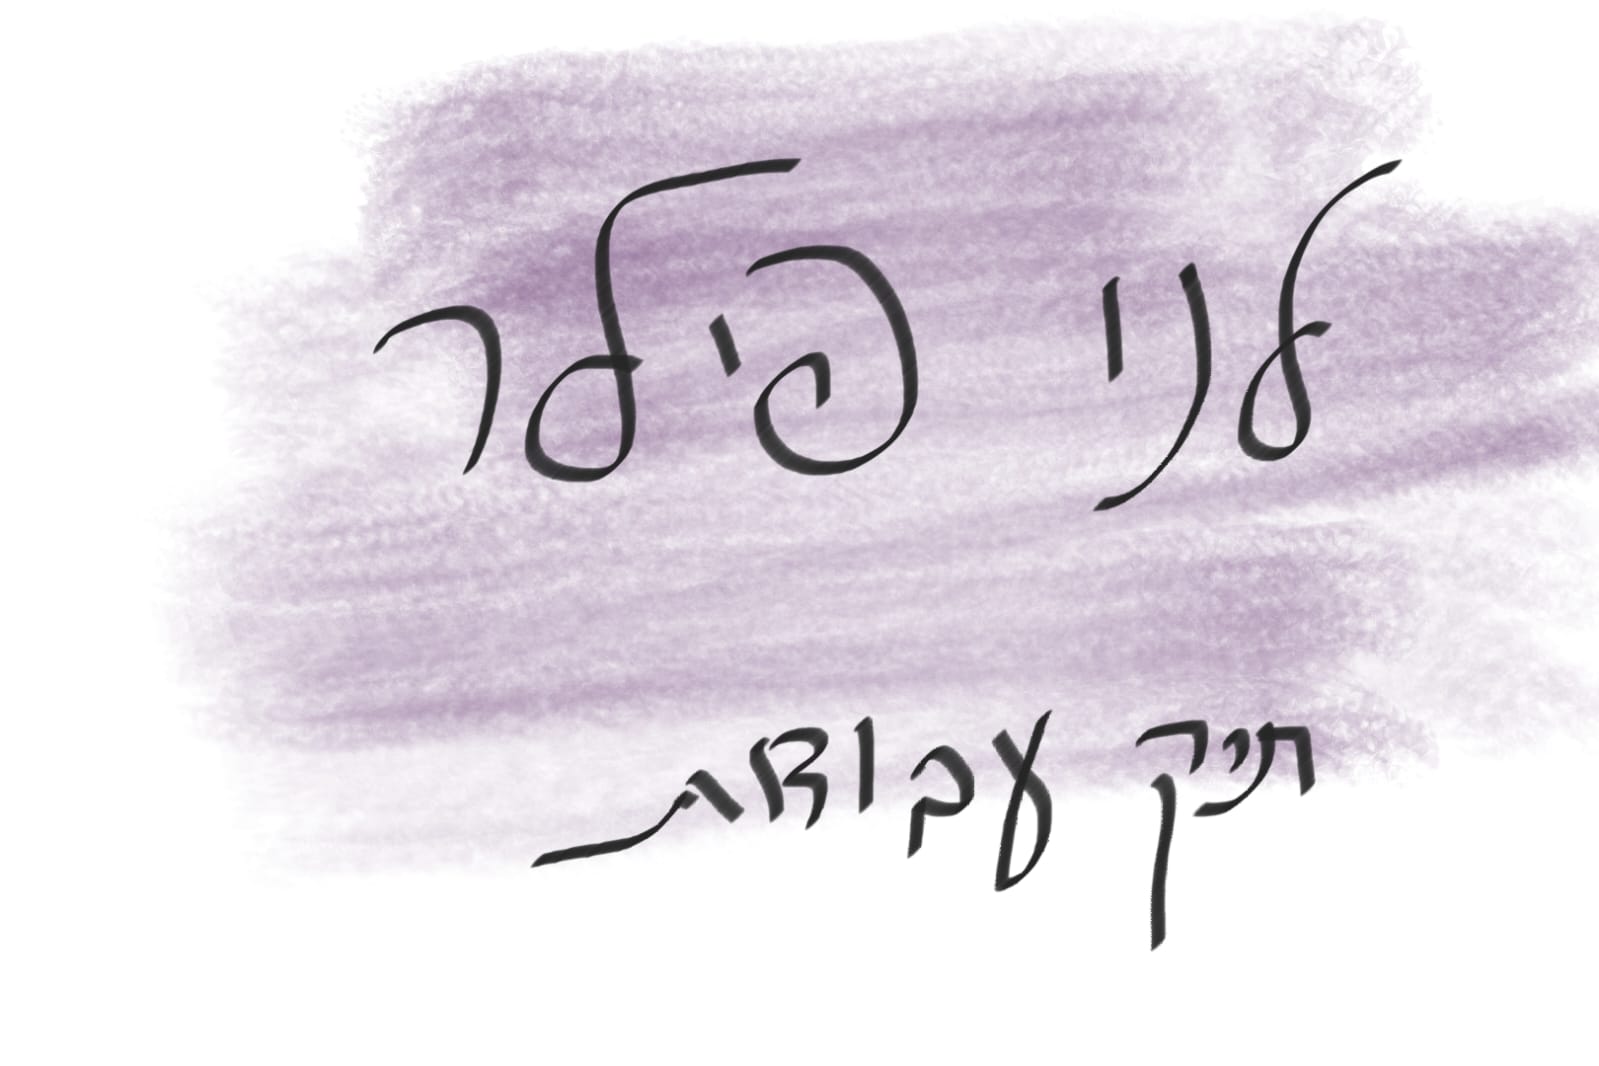 לני פילר
תיק עבודות